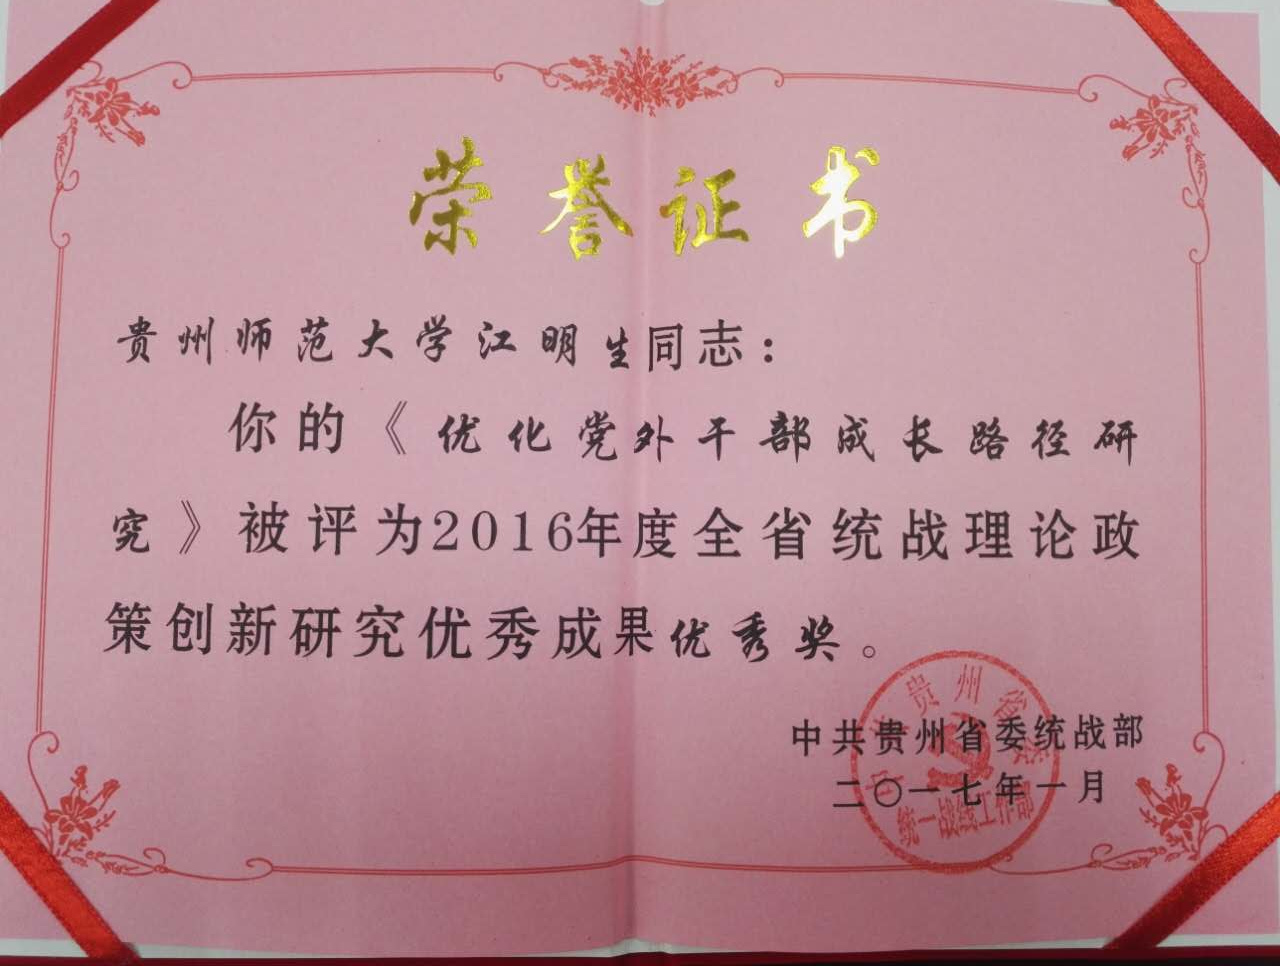 荣誉证书
贵州师范大学江明生同志：
你的《优化党外干部成长路径研
究》被评为2016年度全省统战理论政
策创新研究优秀成果优秀奖。
中共贵州省委统战部
二〇一七年一月
中共贵州省委
统一战线工作部